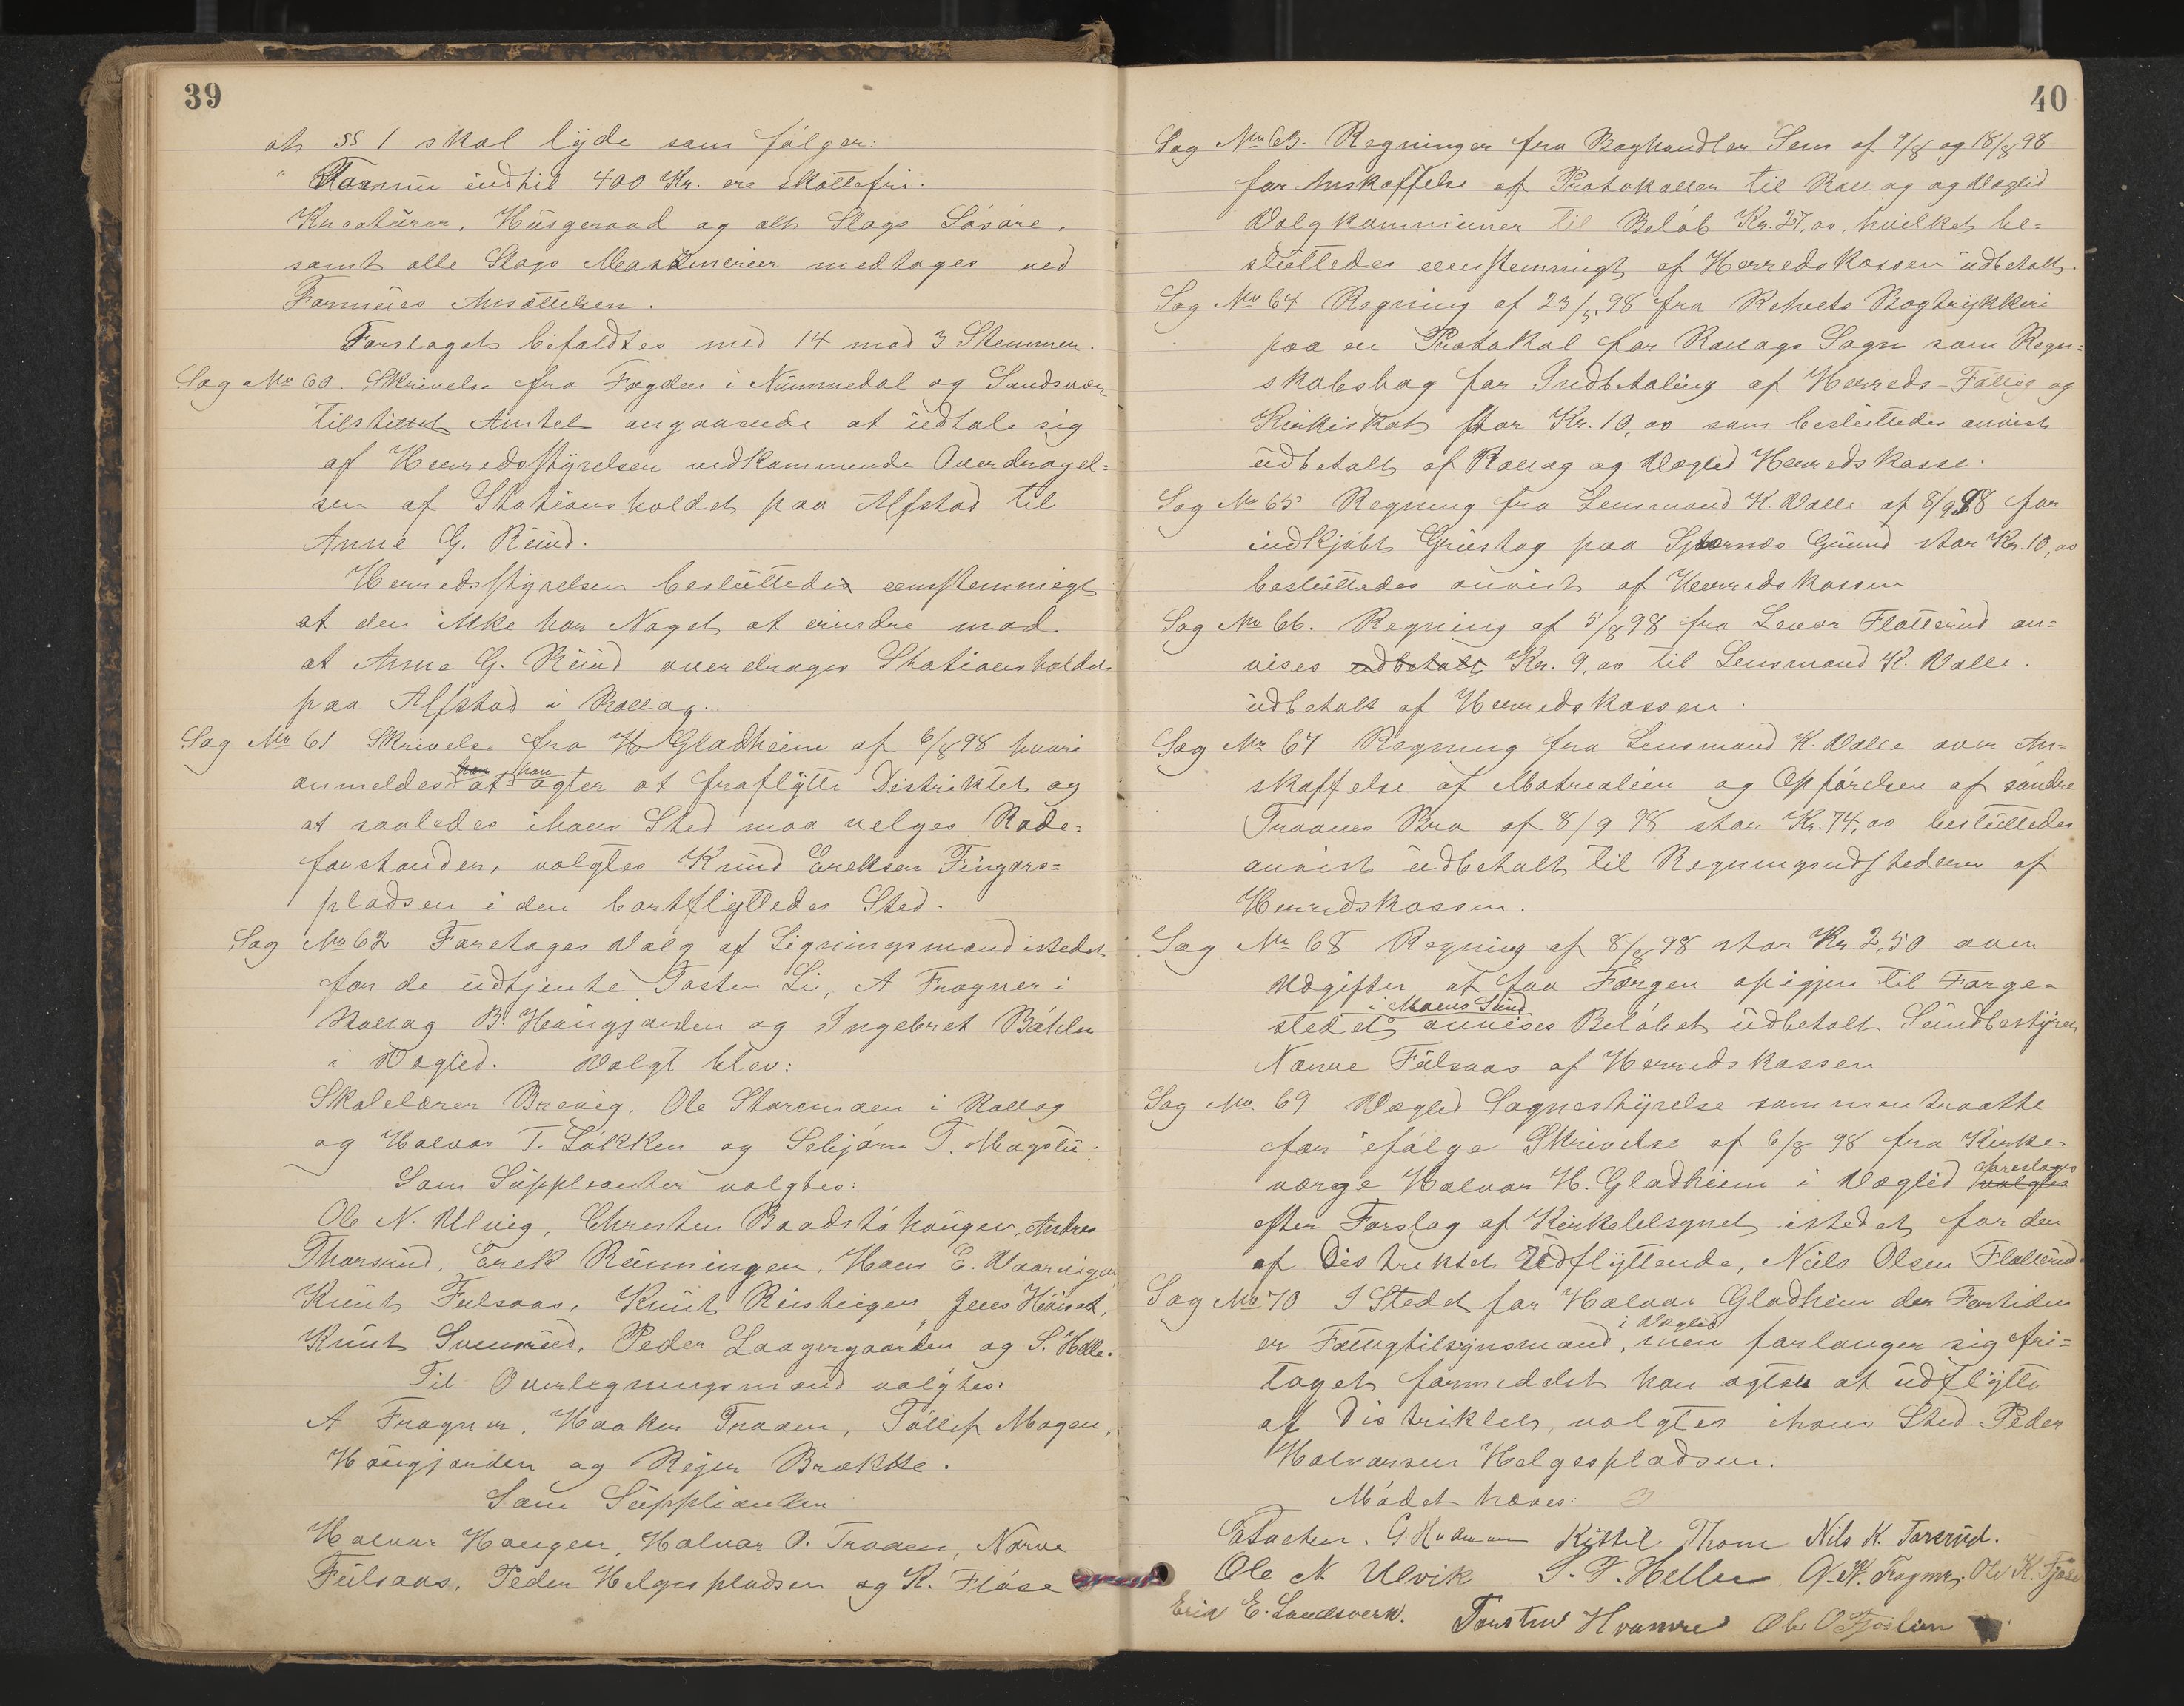 39
at §§ 1 skal lyde som følger:
"Formue indtil 400 Kr. ere skattefri.
Kreaturer, Husgeraad og alt Slags Løsøre,
samt alle Slags Maskinerier medtages ved
Formues Ansættelsen.
Forslaget bifaldtes med 14 mod 3 Stemmer.
Sag No 60. Skrivelse fra Fogden i Nummedal og Sandsvær
tilstillet Amtet angaaende at udtale sig
af Herredsstyrelsen vedkommende Overdragel=
sen af Stationsholdet paa Alfstad til
Anne G. Ruud.
Herredsstyrelsen besluttede eenstemmigt
at den ikke har Noget at erindre mod
at Anne G. Ruud overdrages Stationsholdet
paa Alfstad i Rollag.
Sag No 61 Skrivelse fra H. Gladheim af 6/8 98 hvori
anmeldes at han agter at fraflytte Distriktet og
at saaledes i hans Sted maa velges Rode=
forstander, valgtes Knud Ereksen Fingars=
pladsen i den bortflyttedes Sted.
Sag No 62 Foretages Valg af Ligningsmænd istedet
for de udtjente Tosten Li, A Fragner i
Rollag B. Haugjorden og Ingebret Bøhler
i Væglid. Valgt blev:
Skolelærer Brevig, Ole Storemoen i Rollag
og Halvor T. Løkken og Sebjørn T. Magstu.
Som Suppleanter valgtes:
Ole N. Ulvig, Christen Baadstøhaugen, Andres
Thorsrud, Erek Rønningen, Hans E. Vaarvigen
Knut Fulsaas, Knut Risteigen, Jens
Knut Svensrud, Peder Laagergaarden og S. Helle.
Til Overligningsmænd valgtes:
A Fragner, Haaken Traaen, Tollef Mogen,
Haugjorden og Rejer Brække.
Som Supplianter
Halvor Haugen, Halvor O. Traaen, Narve
Fulsaas, Peder Helgespladsen og K. Fløse
40
Sag No 63. Regninger fra Boghandler Sem af 9/8 og 18/8 98
for Anskaffelse af Protokoller til Rollag og Væglid
Valgkommuner til Beløb Kr. 27,00, hvilket be=
sluttedes eenstemmigt af Herredskassen udbetalt.
Sag No 64 Regning af 23/5 98 fra Bogtrykkeri
paa en Protokol for Rollags Sogn som Regn=
skabsbog for Indbetaling af Herreds- Fattig og
Kirkiskat stor Kr. 10,00 som besluttedes anvist
udbetalt af Rollag og Væglid Herredskasse.
Sag No 65 Regning fra Lensmand K. Valle af 8/9 98 for
indkjøbt Grustag paa Stærnæs Grund stor Kr. 10,00
besluttedes anvist af Herredskassen
Sag No 66. Regning af 5/8 98 fra Levor Flatterud an=
vises udbetalt Kr. 9,00 til Lensmand K. Valle.
udbetalt af Herredskassen.
Sag No 67 Regning fra Lensmand K. Valle over An=
skaffelse af Matrealier og Opførelsen af søndre
Traaens Bro af 8/9 98 stor Kr. 74,00 besluttedes
anvist udbetalt til Regningsudstederen af
Herredskassen.
Sag No 68 Regning af 8/8 98 stor Kr. 2,50 over
Udgifter at faa Færgen opigjen til Færge=
stedet i Moens Sund anvises Beløbet udbetalt Sundbestyrer
Narve Fulsaas af Herredskassen
Sag No 69 Væglid Sognestyrelse sammentraatte
for ifølge Skrivelse af 6/8 98 fra Kirke=
værge Halvor H. Gladheim i Væglid valgtes foreslages
efter Forslag af Kirketilsynet istedet for den
af Distriktet Udflyttende, Nils Olsen Flatterud.
Sag No 70 I Stedet for Halvor Gladheim der Fortiden
er Fattigtilsynsmand i Væglid, men forlanger sig fri=
taget formedelst han agter at udflytte
af Distriktet, valgtes i hans Sted Peder
Halvorsen Helgespladsen.
Mødet hæves:
Kittil Thom Nils K. Tarsrud.
Ole N Ulvik S. T. Helle A. N. Fragner. Ole K. Fjøse
Erik E. Landsverk. Torsten Hvamre Ole O Fjøslien